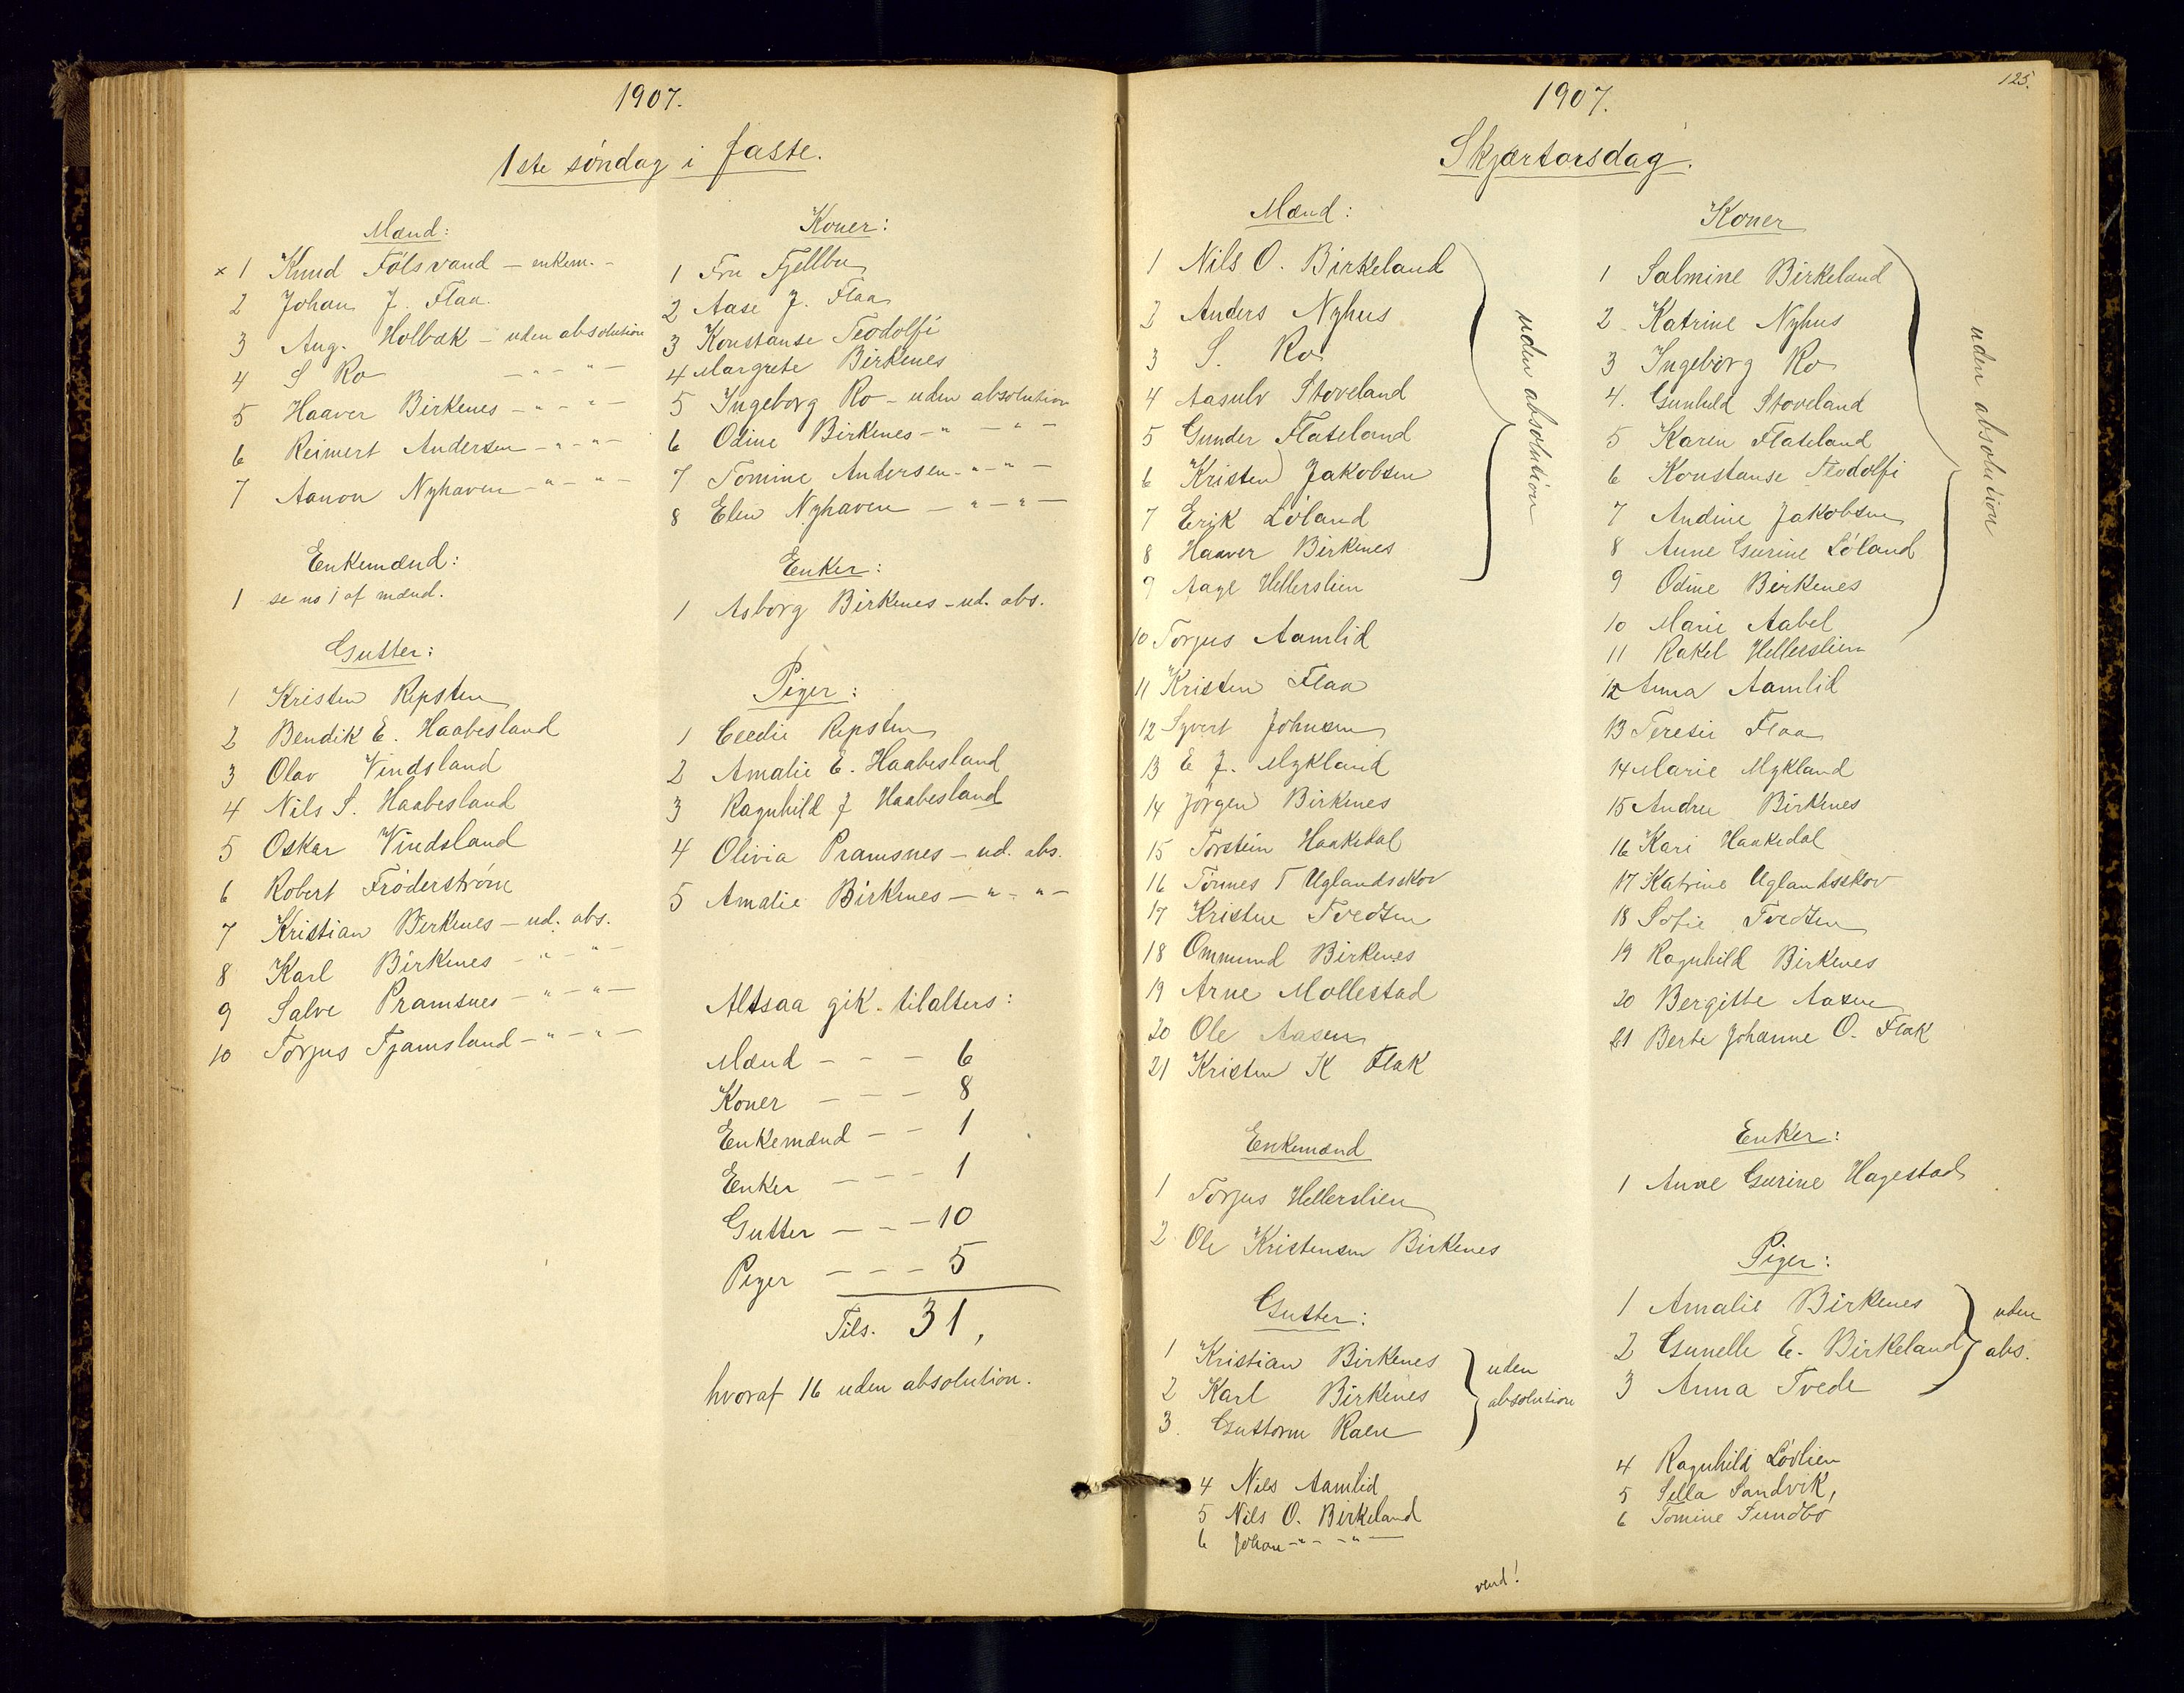 1907.
1ste søndag i faste.
Mænd:
× 1 Knud Fölsvand - enkem. -
2 Johan J. Flaa.
3 Aug. Holbæk - uden absolution
4 S Ro - " - " -
5 Haaver Birkenes - " - " -
6 Reimert Andersen - " - " -
7 Aanon Nyhaven - " - " -
Enkemænd:
1 se no 1 af mænd.
Gutter:
1 Kristen Repsten
2 Bendik E. Haabesland
3 Olav Vindsland
4 Nils S. Haabesland
5 Oskar Vindsland
6 Robert Fröderström
7 Kristian Birkenes - ud. abs.
8 Karl Birkenes - " - " -
9 Salve Pramsnes - " - " -
10 Torjus Tjamsland - " - " -
Koner:
1 Fru Fjellbu
2 Aase J. Flaa
3 Konstanse Teodolfi
4 Margrete Birkenes
5 Ingeborg Ro - uden absolution
6 Odine Birkenes - " - " -
7 Tomine Andersen - " - " -
8 Elen Nyhaven - " - " -
Enker:
1 Asborg Birkenes - ud. abs.
Piger:
1 Cecelie Repsten
2 Amalie E. Haabesland
3 Ragnhild J Haabesland
4 Olivia Pramsnes - ud. abs.
5 Amalie Birkenes - " - " -
Altsaa gik tilalters:
Mænd - - - 6
Koner - - - 8
Enkemænd - - 1
Enker - - - 1
Gutter - - - 10
Piger - - - 5
Tils. 31,
hvoraf 16 uden absolution.
125.
1907.
Skjærtorsdag.
Mænd:
1 Nils O. Birkeland
2 Anders Nyhus
3 S. Ro
4 Aasulv Stoveland
5 Gunder Flateland
6 Kristen Jakobsen
7 Erik Löland
8 Haaver Birkenes
9 Aage Hellerslien
uden absolution
10 Torjus Aamlid
11 Kristen Flaa
12 Syvert Johnsen
13 E J. Mykland
14 Jörgen Birkenes
15 Torstein Haakedal
16 Tönnes T Uglandsskov
17 Kristen Tvedten
18 Ommund Birkenes
19 Arne Mollestad
20 Ole Aasen
21 Kristen K Flak
Enkemænd
1 Torjus Hellerslien
2 Ole Kristensen Birkenes
Gutter:
1 Kristian Birkenes
2 Karl Birkenes
3. Guttorm Raen
uden
absolution
4 Nils Aamlid
5 Nils O. Birkeland
6 Johan - " - " -
vend!
Koner
1 Salmine Birkeland
2 Katrine Nyhus
3 Ingeborg Ro
4. Gunhild Stoveland
5 Karen Flateland
6 Konstanse Teodolfi
7 Andine Jakobsen
8 Anne Gurine Löland
9 Odine Birkenes
10 Marie Aabel
11 Rakel Hellerslien
uden absolution
12 Anna Aamlid
13 Teresie Flaa
14 Marie Mykland
15 Andrea Birkenes
16 Kari Haakedal
17 Katrine Uglandsskov
18 Sofie Tvedten
19 Ragnhild Birkenes
20 Bergitte Aasen
21 Berte Johanne O. Flak
Enker:
1 Anne Gurine Hagestad
Piger:
1 Amalie Birkenes
2 Gunelle E. Birkeland
3 Anna Tvede
uden
abs.
4 Ragnhild Lövlien
5 Sella Sandvik,
6 Tomine Tundbö